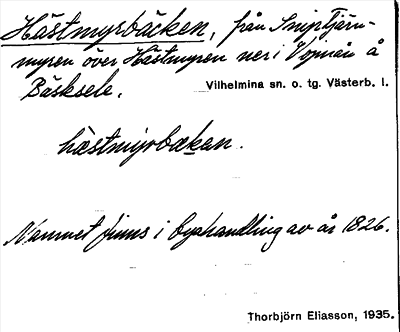 Hästmyrbäcken, från Sniptjärn-
myren över Hästmyren ner i Vojmån å
Bäsksele.
Vilhelmina sn. o. tg. Västerb. l.
hästmyrbækan.
Namnet finns i byahandling av år 1826.
Thorbjörn Eliasson, 1935.